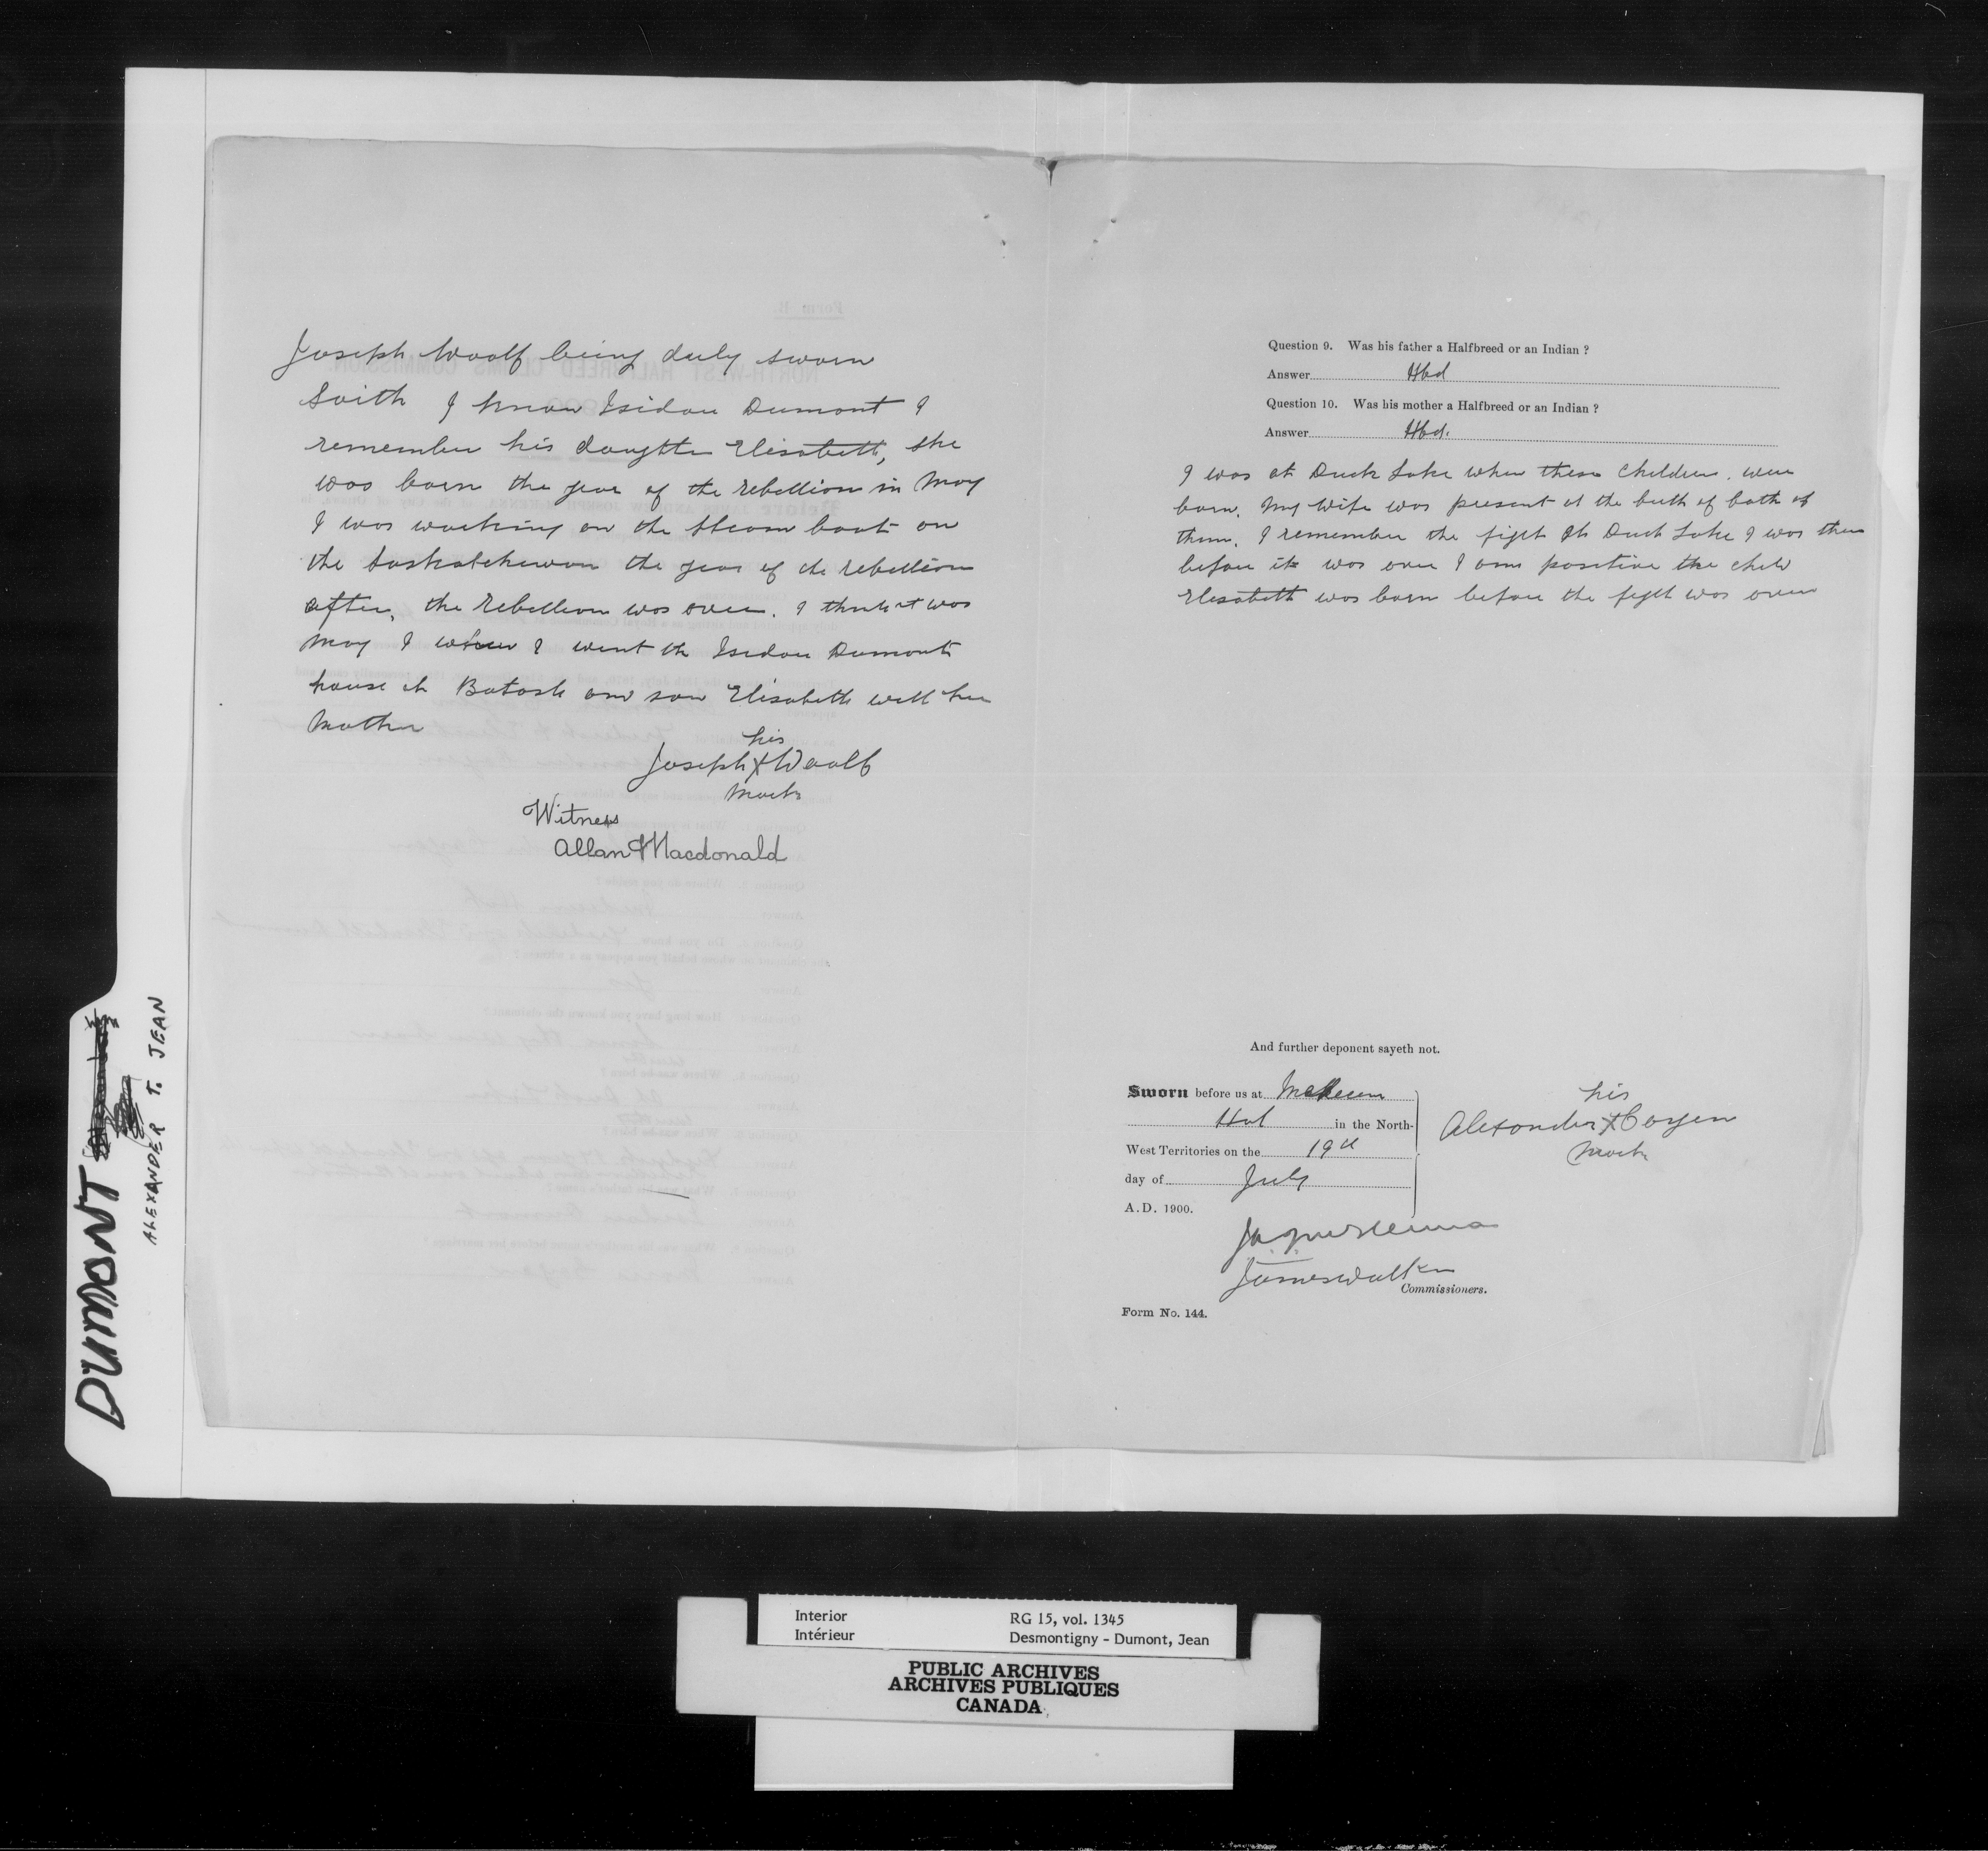 Joseph Woolf being duly sworn
Saith I know Isidore Dumont I
remember his daughter Elisabeth, she
was born the year of the rebellion in May
I was working on the Steam boat on
the Saskatchewan the year of the rebellion
after, the Rebellion was over. I think it was
May I when I went to Isidore Dumonts
house at Batosh and saw Elisabeth with her
Mother
his
Joseph X Woolf
Mark
Witness
Allan Macdonald
Question 9. Was his father a Halfbreed or an Indian ?
Answer Hbd
Question 10. Was his mother a Halfbreed or an Indian ?
Answer Hbd.
I was at Duck Lake when these children were
born. My wife was present at the birth of both of
them. I remember the fight at Duck Lake I was there
before it was over I am positive the child
Elisabeth was born before the fight was over
And further deponent sayeth not.
Sworn before us at Medicine
Hat in the North-
West Territories on the 19th
day of July
A.D. 1900.
his
Alexander X Cayen
Mark
James Walker
Commissioners.
Form No. 144.
DUMONT
ALEXANDER T. JEAN
Interior
Intérieur
RG 15, vol. 1345
Desmontigny - Dumont, Jean
PUBLIC ARCHIVES
ARCHIVES PUBLIQUES
CANADA